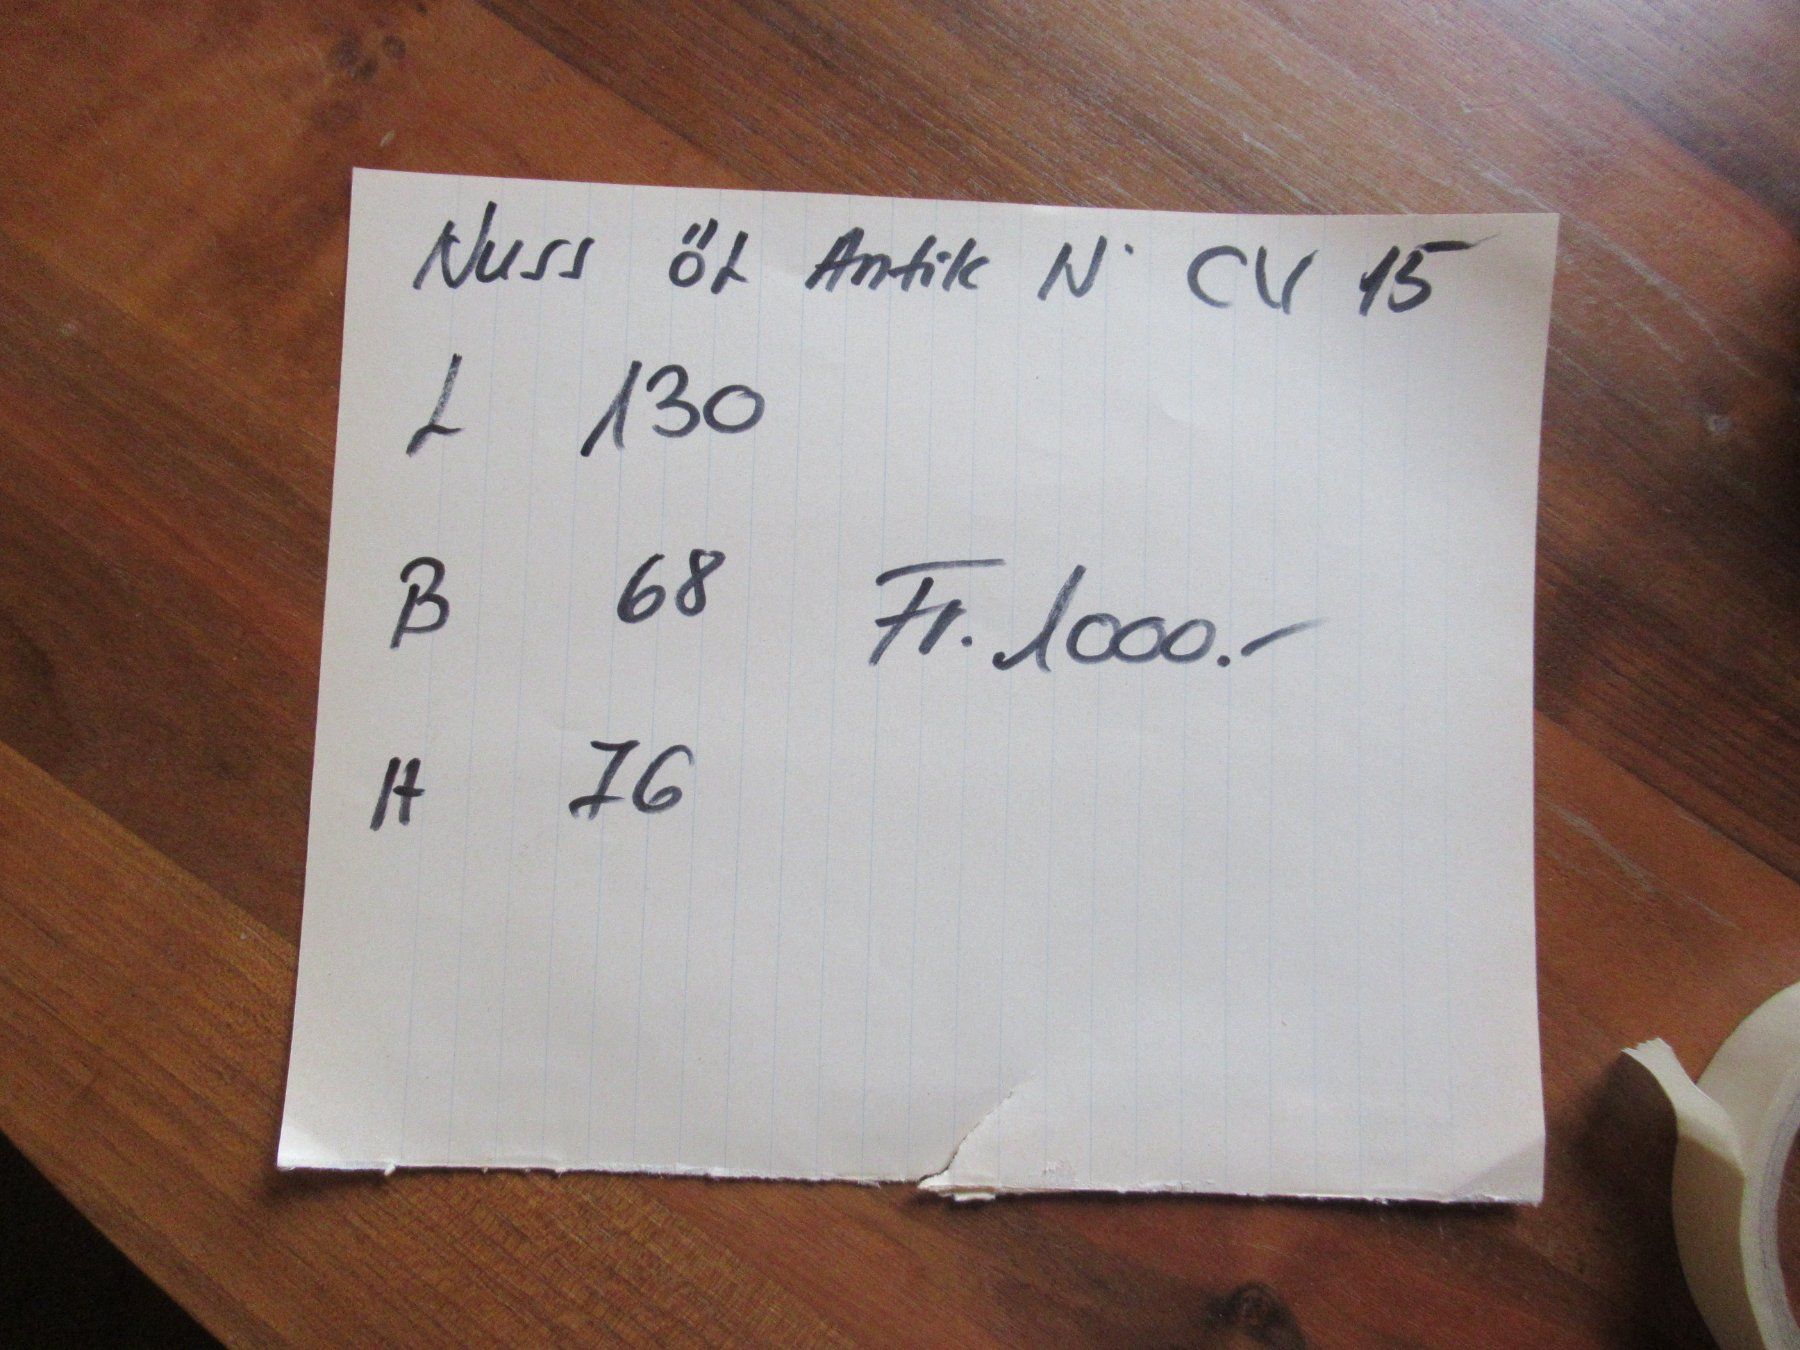 Nuss öl Antik N° CV 15
L 130
B 68 Fr. 1000.-
H 76